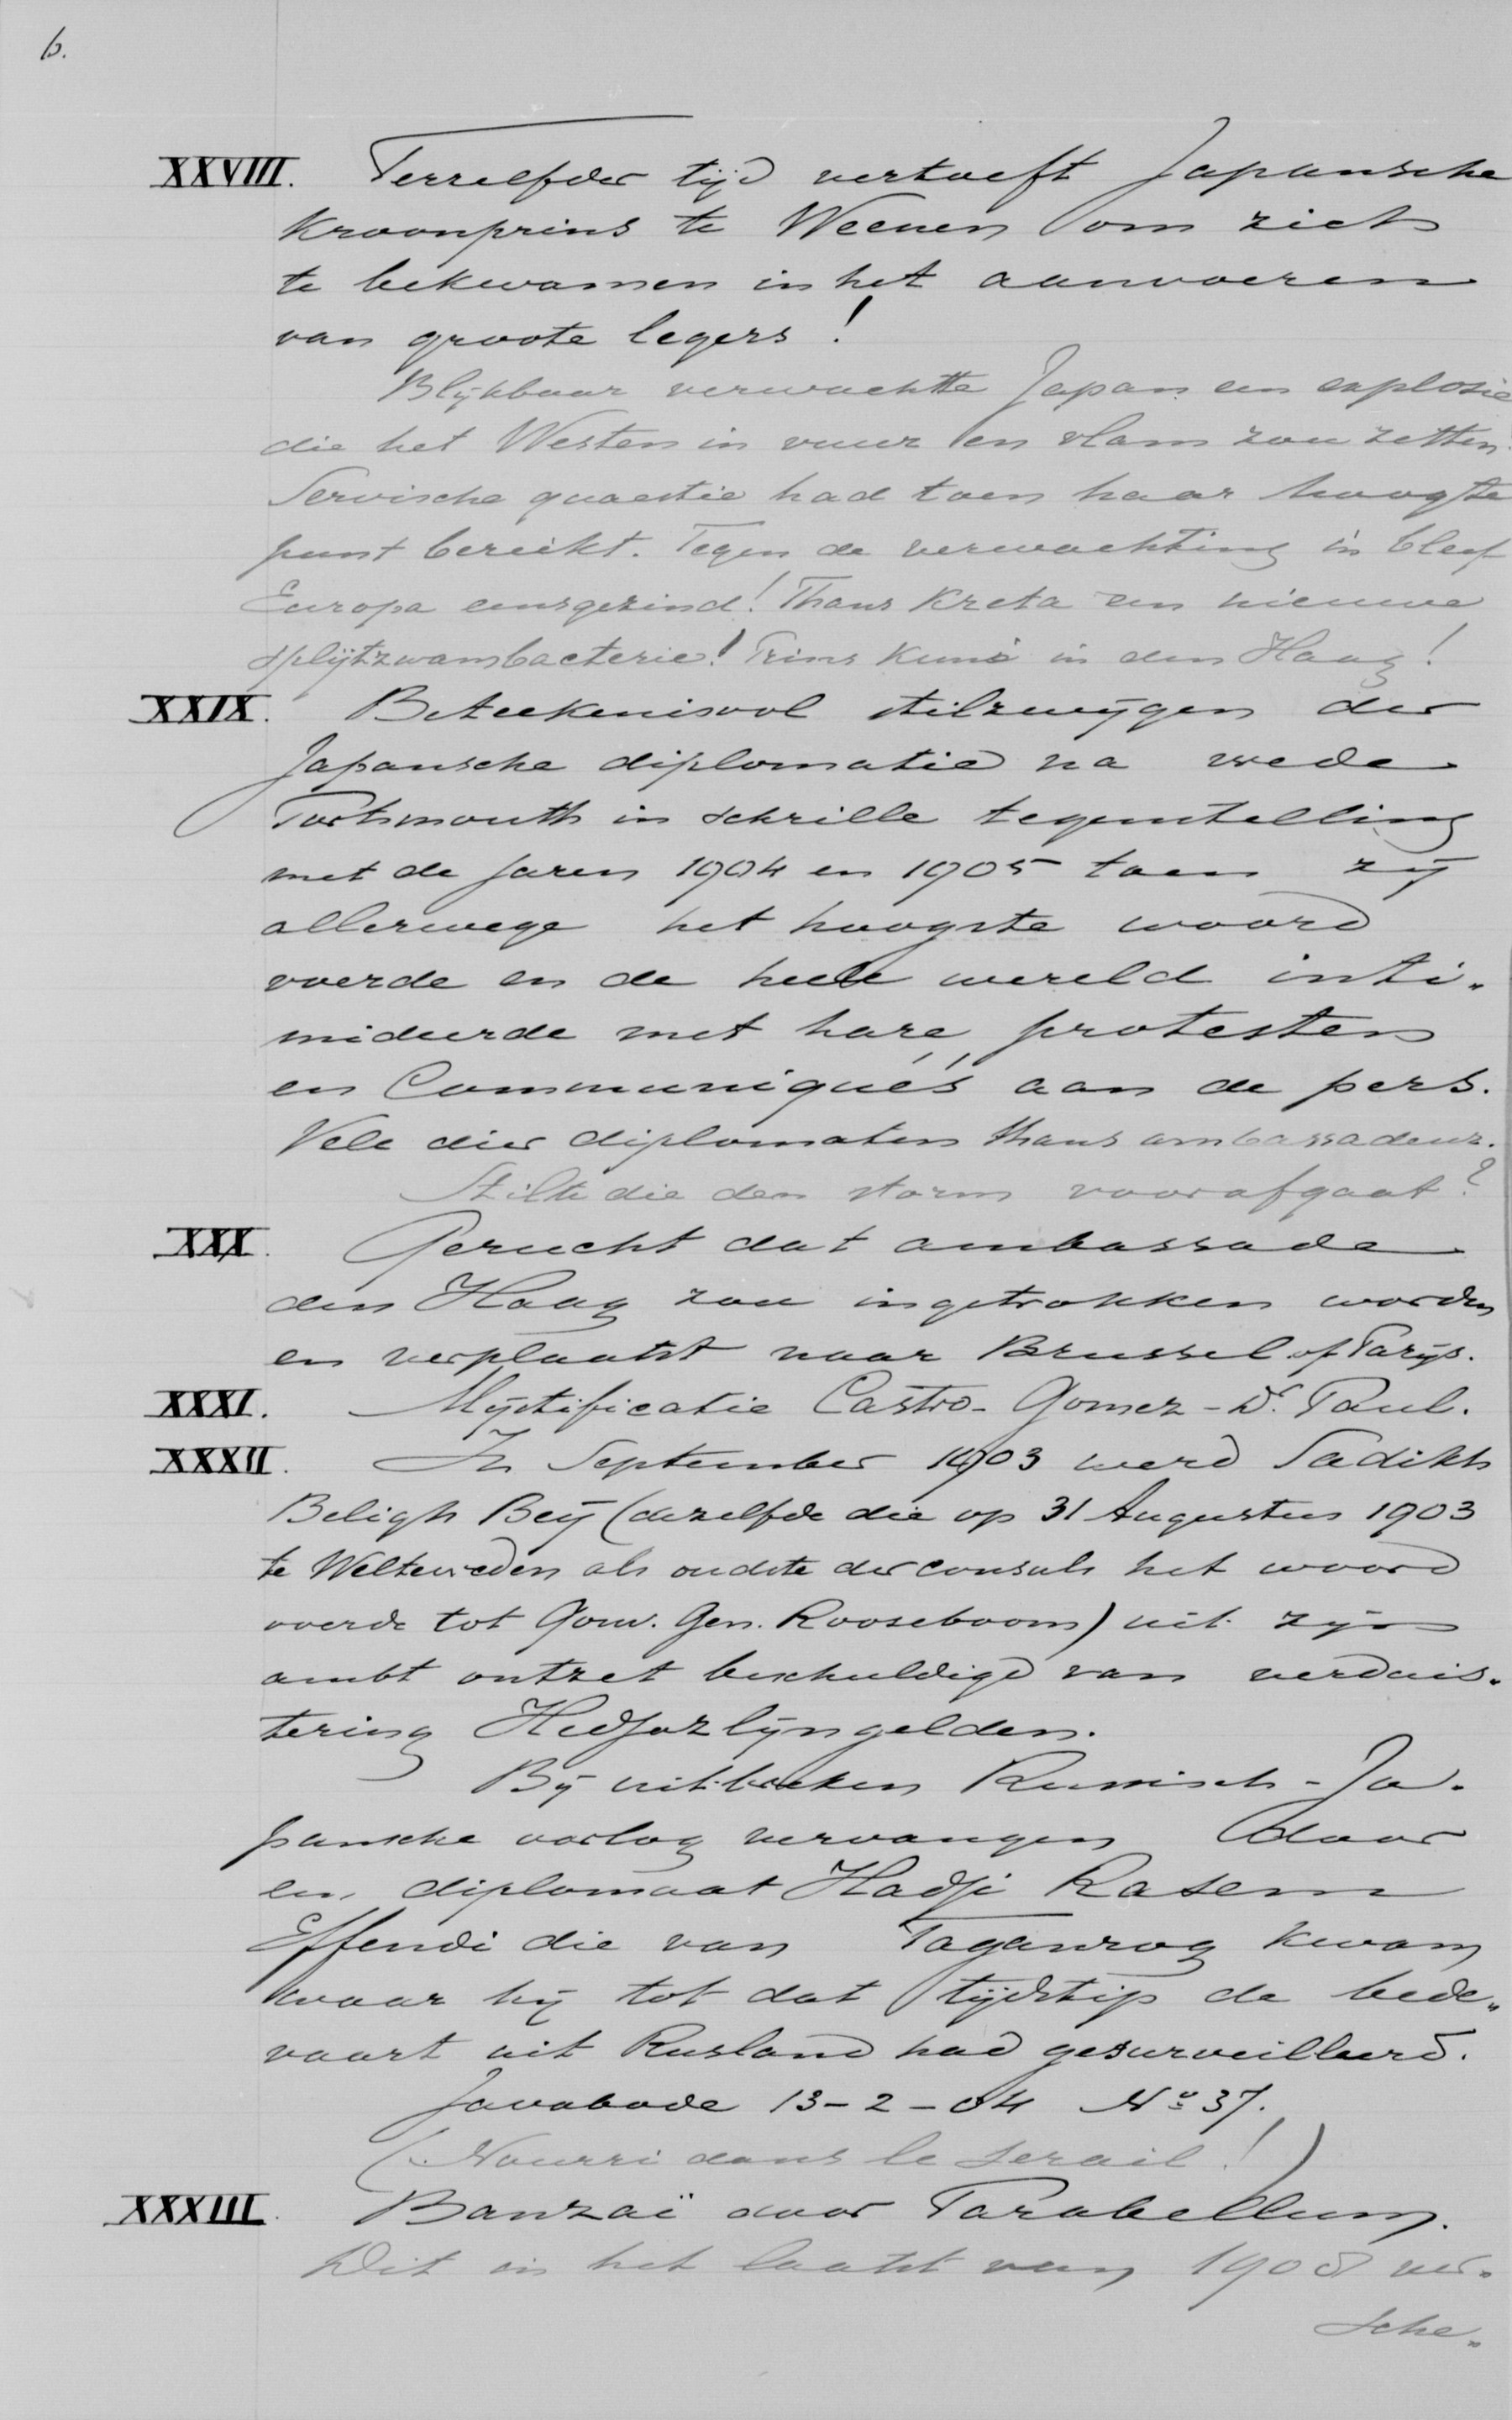 6.
XXVIII. Terzelfder tijd vertoeft Japansche
Kroonprins te Weenen om zich
te bekwamen in het aanvoeren
van groote legers!
Blijkbaar verwachtte Japan een explosie
die het Westen in vuur en vlam zou zetten.
Servische quaestie had toen haar hoogte
punt bereikt. Tegen de verwachting in bleef
Europa eensgezind! Thans Kreta een nieuwe
splijtzwambacterie! Prins Kuni in den Haag!
XXIX. Beteekenisvol stilzwijgen der
Japansche diplomatie na vrede
Portsmouth in schrille tegenstelling
met de jaren 1904 en 1905 toen zij
allerwege het hoogste woord
voerde en de heele wereld inti-
mideerde met hare protesten
en Communiqués aan de pers.
Vele dier diplomaten thans ambassadeur.
Stilte die den storm voorafgaat?
XXX. Gerucht dat ambassade
den Haag zou ingetrokken worden
en verplaatst naar Brussel of Parijs.
XXXI. Mystificatie Castro-Gomez-Dr. Paul.
XXXII. In September 1903 werd Sadikh
Beligh Bey (dezelfde die op 31 Augustus 1903
te Weltevreden als oudste der consuls het woord
voerde tot Gouv. Gen. Rooseboom) uit zijn
ambt ontzet beschuldigd van verduis-
tering Hedjazlijngelden.
Bij uitbreken Russisch-Ja-
pansche oorlog vervangen door
een diplomaat Hadji Rasem
Effendi die van Taganrog kwam
waar hij tot dat tijdstip de bede-
vaart uit Rusland had gesurveilleerd.
Javabode 13-2-04 No 37.
(Nourri dans le serail!)
XXXIII. Banzaï door Parabellum.
Dit in het laatst van 1908 ver-
sche-